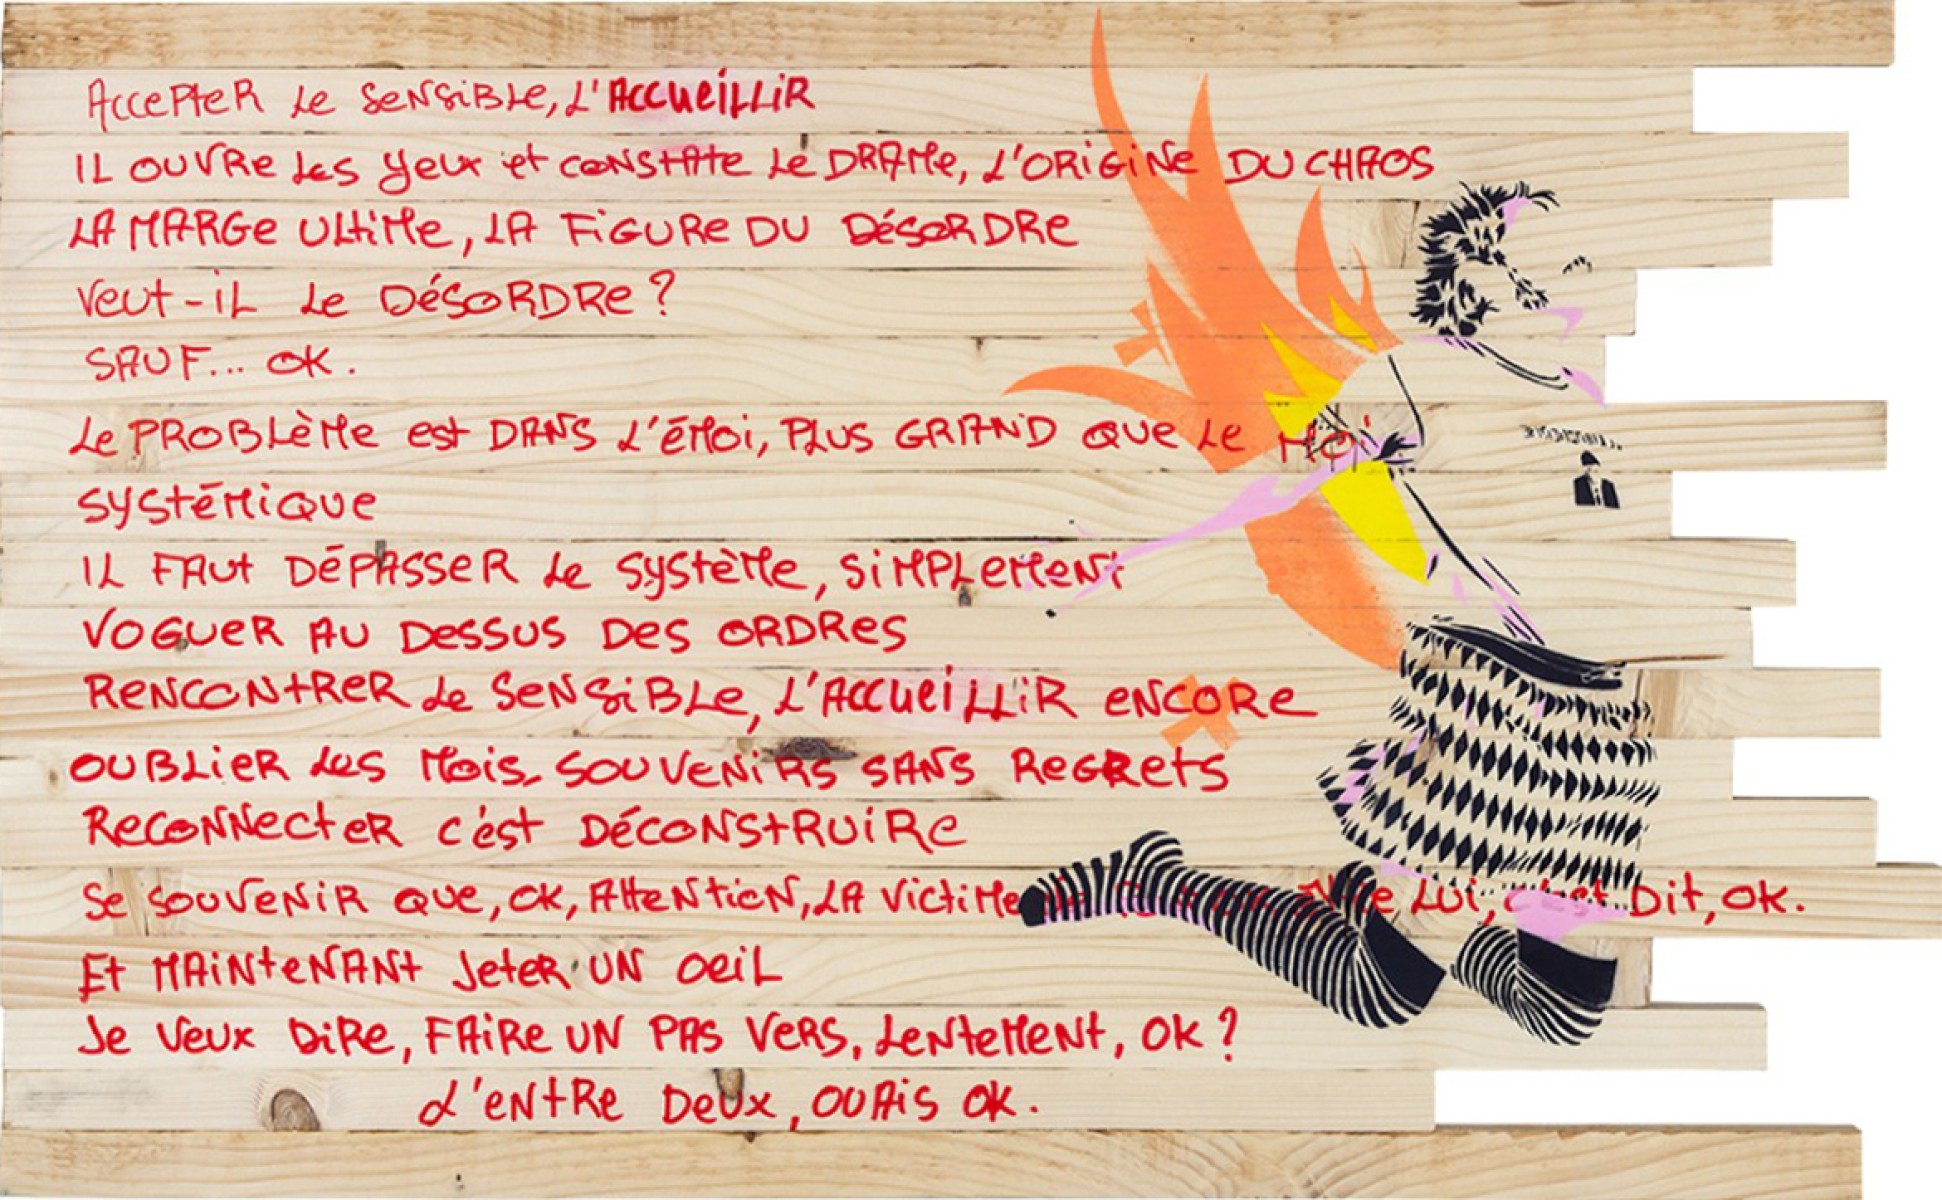 ACCEPTER LE SENSIBLE, L'ACCUEILLIR
IL OUVRE LES YEUX ET CONSTATE LE DRAME, L'ORIGINE DU CHAOS
LA MARGE ULTIME, LA FIGURE DU DÉSORDRE
VEUT-IL LE DÉSORDRE ?
SAUF... OK.
LE PROBLÈME EST DANS L'ÉMOI, PLUS GRAND QUE LE MOI
SYSTÉMIQUE
IL FAUT DÉPASSER LE SYSTÈME, SIMPLEMENT
VOGUER AU DESSUS DES ORDRES
RENCONTRER LE SENSIBLE, L'ACCUEILLIR ENCORE
OUBLIER LES MOIS, SOUVENIRS SANS REGRETS
RECONNECTER C'EST DÉCONSTRUIRE
SE SOUVENIR QUE, OK, ATTENTION, LA VICTIME LUI, C'EST DIT, OK.
ET MAINTENANT JETER UN OEIL
JE VEUX DIRE, FAIRE UN PAS VERS, LENTEMENT, OK ?
L'ENTRE DEUX, OUAIS OK.